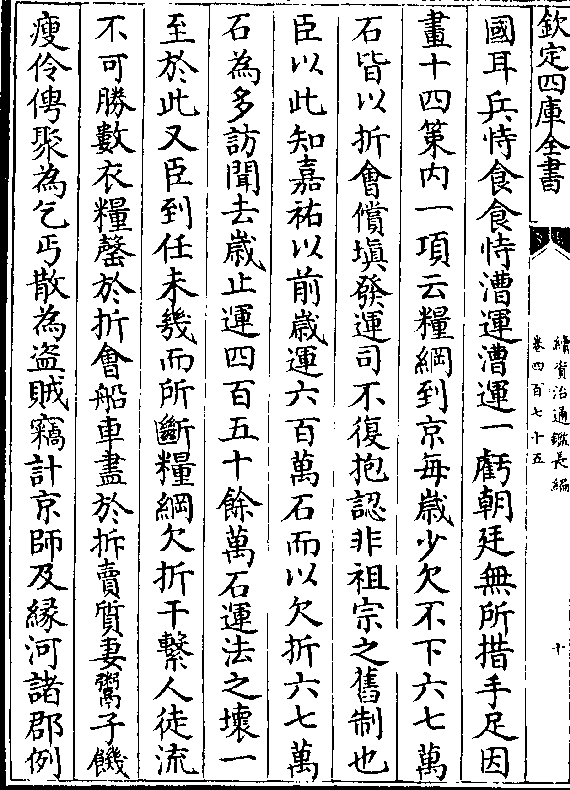 欽定四庫全書
續資治通鑑長編
卷四百七十五
十
國耳兵恃食食恃漕運漕運一虧朝廷無所措手足因
畫十四策内一項云糧綱到京每歲少欠不下六七萬
石皆以折會償填發運司不復抱認非祖宗之舊制也
臣以此知嘉祐以前歲運六百萬石而以欠折六七萬
石為多訪聞去歲止運四百五十餘萬石運法之壞一
至於此又臣到任未幾而所斷糧綱欠折干繫人徒流
不可勝數衣糧罄於折會船車盡於拆賣質妻鬻子饑
瘦伶俜聚為乞丐散為盜賊竊計京師及縁河諸郡例